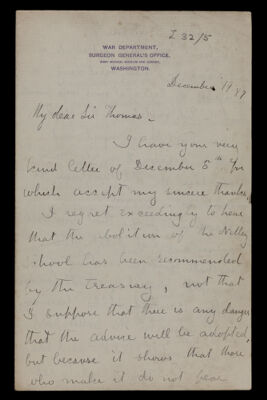 I 32/5
WAR DEPARTMENT,
SURGEON GENERAL'S OFFICE,
WASHINGTON.
December 19 89
My dear Sir Thomas -
I have your very
kind letter of December 5th for
which accept my sincere thanks
I regret exceedingly to hear
that the abolition of the Netley
school has been recommended
by the Treasury, not that
I suppose that there is any danger
that the advice will be adopted,
but because it shows that those
who make it do not bear